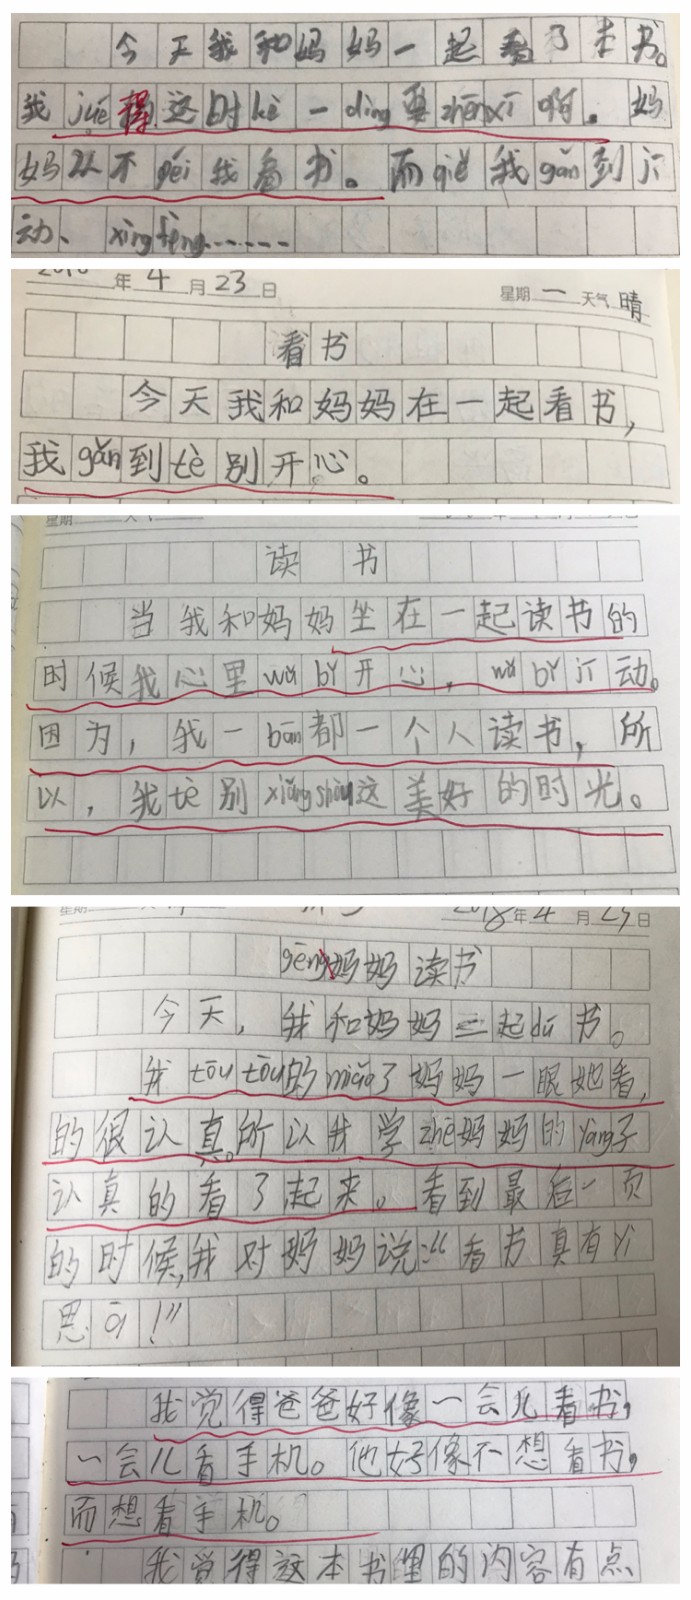 今天我和妈妈一起看了本书。
我jué得这时kè一dìng要zhēnxī啊。妈
妈从不péi我看书。而qiě我gǎn到jī
动、xìngfèng……
年4月23日 星期一 天气晴
看书
今天我和妈妈在一起看书,
我gǎn到tè别开心。
星期 天气
读书
当我和妈妈坐在一起读书的
时候我心里wú bǐ开心,wú bǐ jī动。
因为,我一bān都一个人读书,所
以,我tè别xiǎngshòu这美好的时光。
星期 2018年4月23日
gēng妈妈读书
今天,我和妈妈一起dú书。
我tōu tōu的miáo了妈妈一眼她看,
的很认真。所以我学zhe妈妈的yàng子
认真的看了起来。看到最后一页
的时候,我对妈妈说:“看书真有yì
思ā!”
我觉得爸爸好像一会儿看书,
一会儿看手机。他好像不想看书,
而想看手机。
我觉得这本书里的内容有点